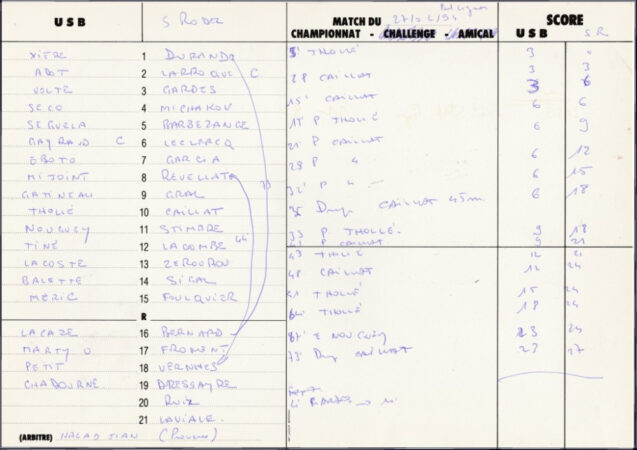 USB S RODEZ MATCH DU 27/02/94 SCORE
CHAMPIONNAT - CHALLENGE - AMICAL USB S R
1 DURAND 5' THOLIÉ 3
ABOT 2 LARROQUE C 28 CAILLAT 3 3
VOLTE 3 GARDES 3 6
SECO 4 MICHAKOV 15' CAILLAT 6 6
SEGUELA 5 BARBEZANGE P THOLIÉ 6 9
GAYRAUD C 6 LECLERCQ 21' P CAILLAT
EBOTO 7 GARCIA 28 P " 6 12
MITJOINT 8 REVELLATO 32' P " 6 15
GATINEAU 9 GRAL 35 Drop CAILLAT 45m 6 18
THOLIÉ 10 CAILLAT
NOUGUEY 11 STIMBRE 33 P THOLIÉ. 9 18
TINÉ 12 LACOMBE 44' P CAILLAT 9 21
LACOSTE 13 ZEROUROU 43 THOLIÉ 12 21
BALETTE 14 SIGAL 48 CAILLAT 12 24
MÉRIC 15 FOULQUIER THOLIÉ 15 24
R THOLIÉ 18 24
LACAZE 16 BERNARD E NOUGUEY 23 24
MARTY O 17 FROMENT Drop CAILLAT 23 27
PETIT 18 VERNHES
CHADOURNE 19 BRESSAYRE
20 RUIZ
21 LAVIALE.
(ARBITRE) (Provence)